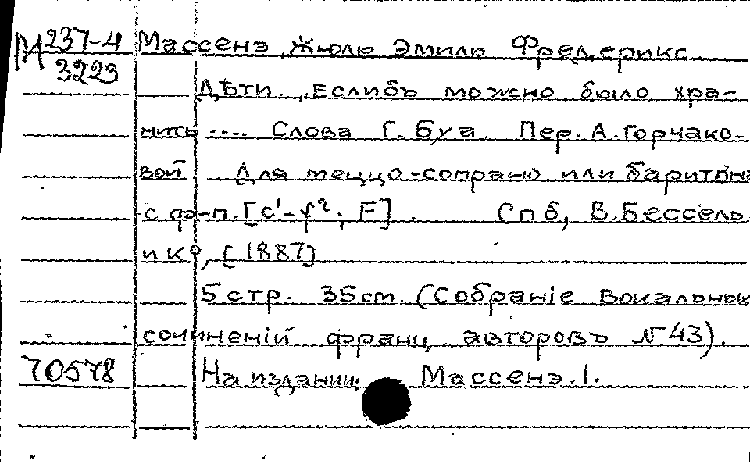 М 237-4 Массенэ, Жюль Эмиль Фредерикъ
3223
Дѣти, Еслибъ можно было хра-
нить .... Слова Г. Буа Пер. А. Горчако-
вой Для меццо-сопрано или баритона
с ф-п. [c'-f²; F]. Спб, В. Бессель
и Кº, [1887]
5 стр. 35 cm. (Собраніе вокальных
сочиненій франц авторовъ № 43).
70578 На издании: Массенэ. I.